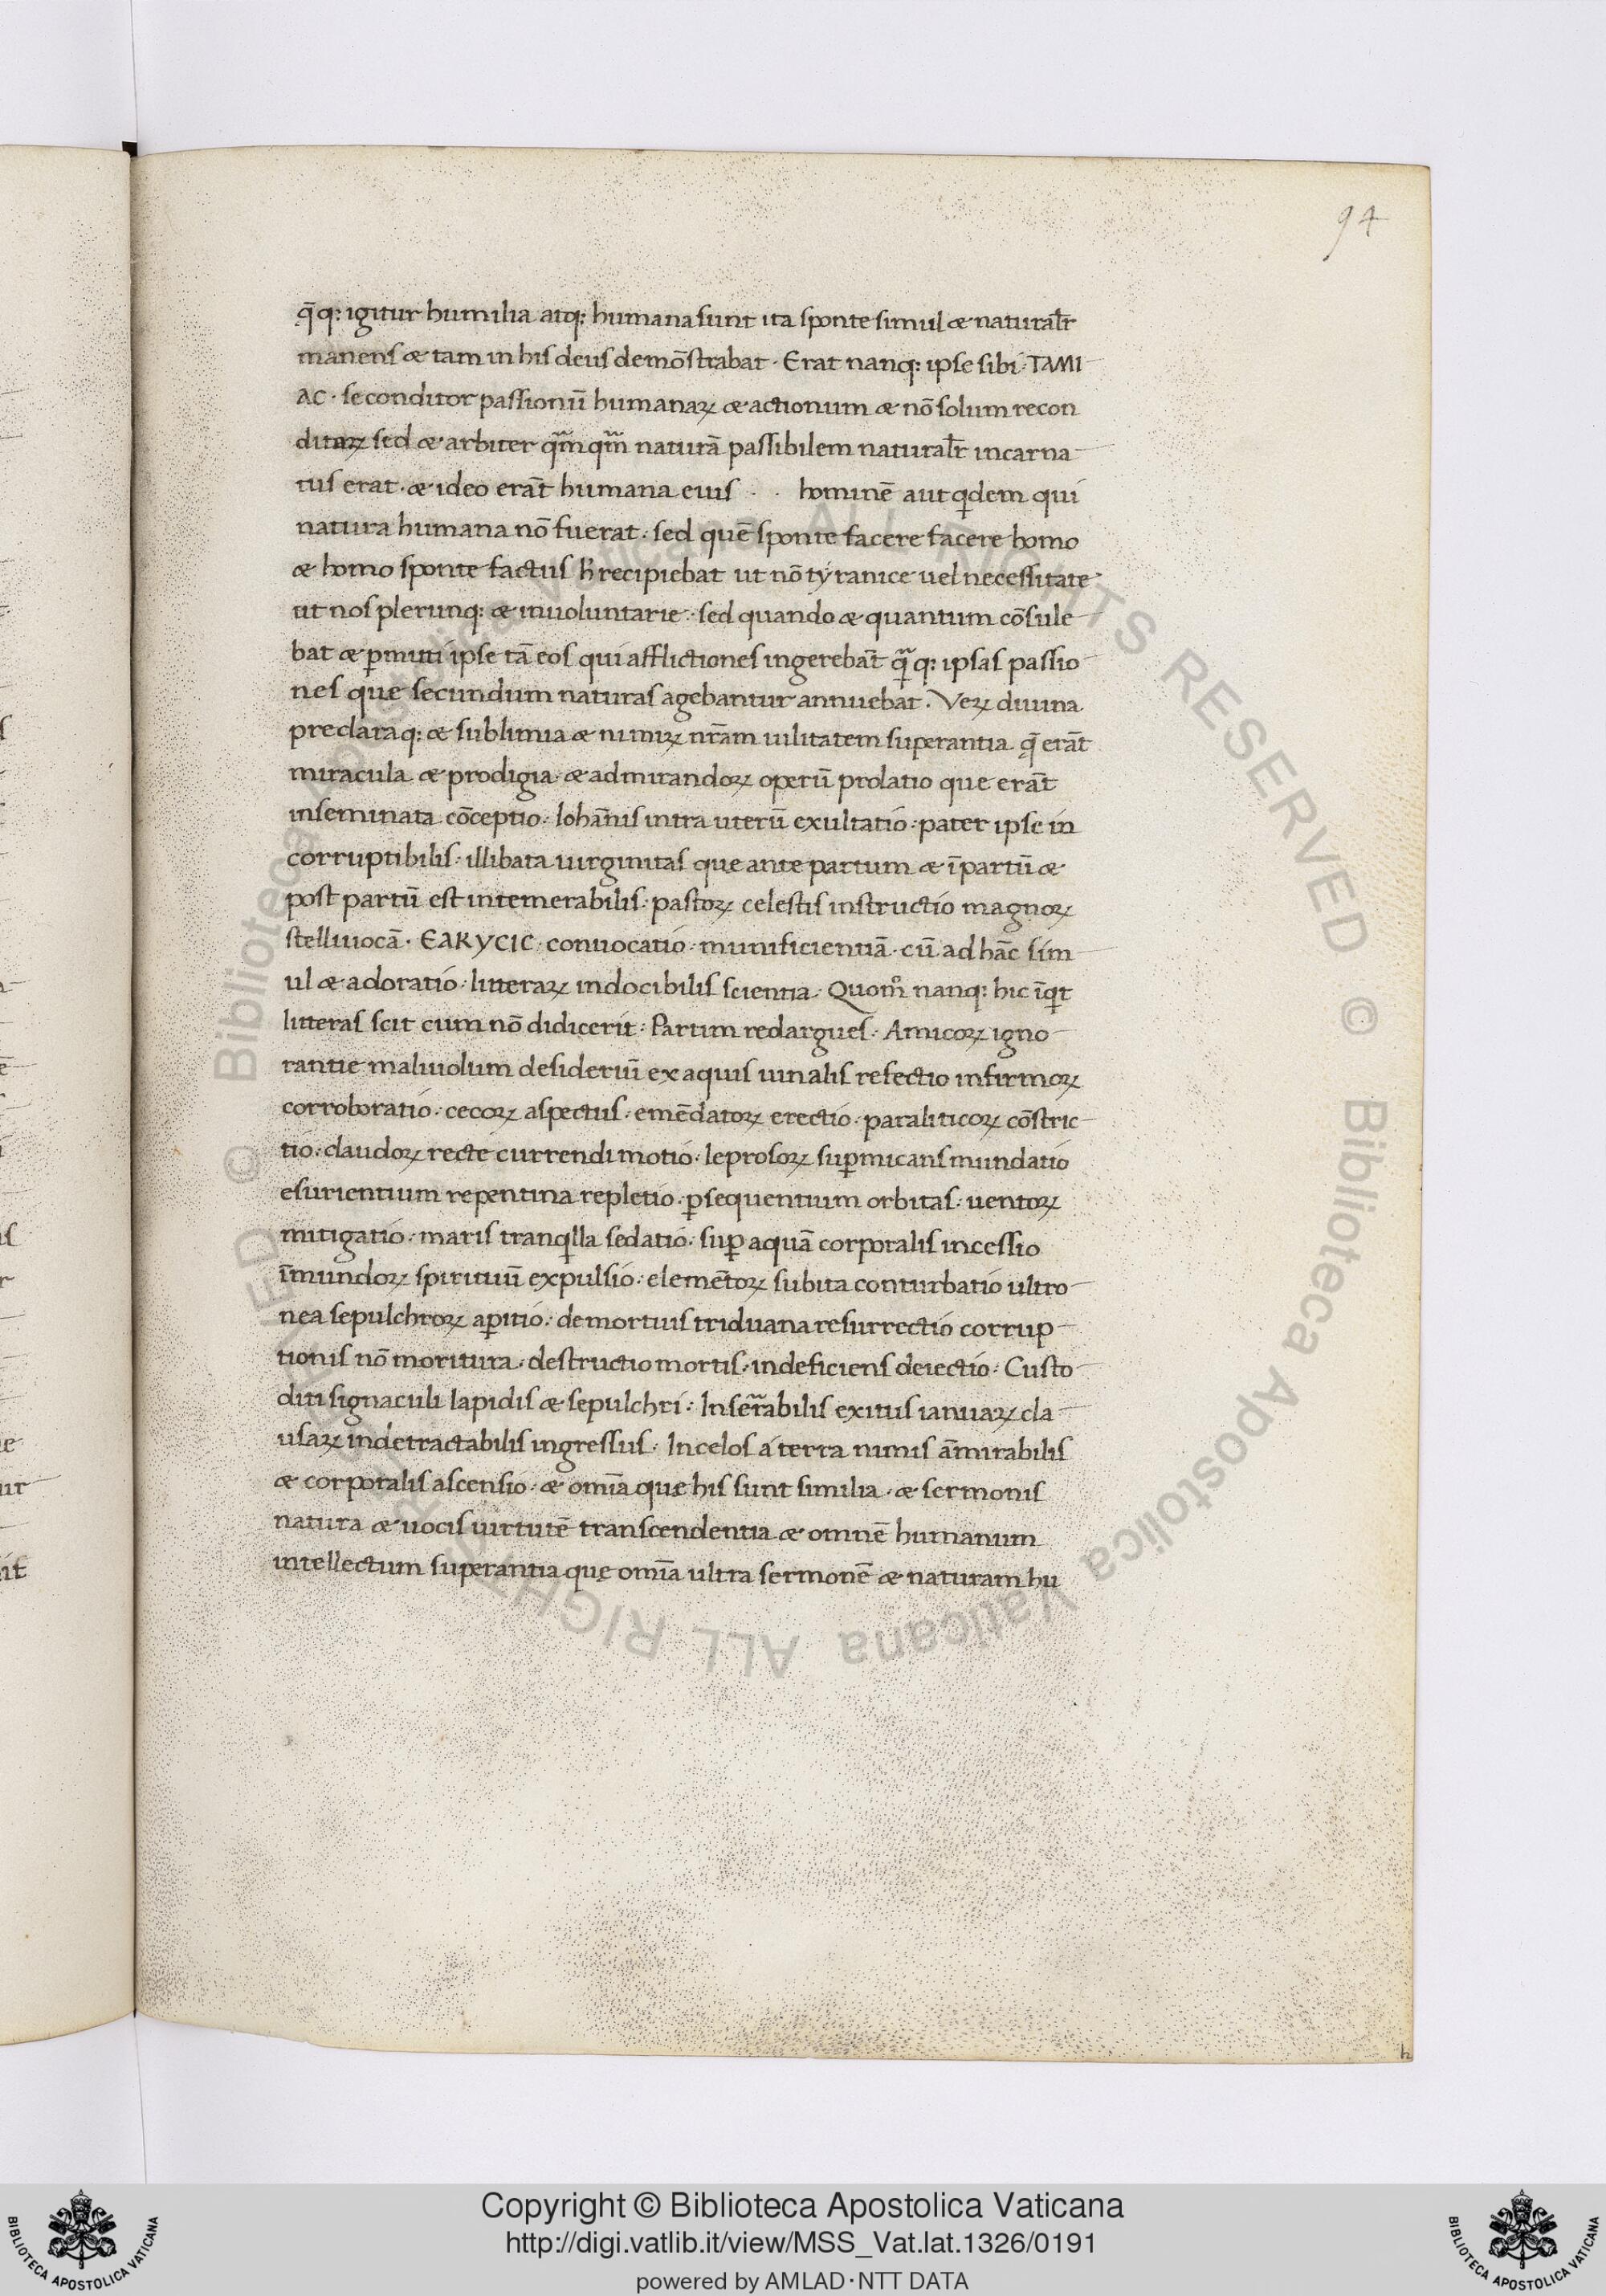 94
q̄q: igitur humilia atq: humana sunt ita sponte simul & naturalr̄
manens & tam in his deus demōstrabat · Erat nanq: ipse sibi · TAMI
AC · se conditor passionū humanaꝝ & actionum & nō solum recon
ditaꝝ sed & arbiter qm̄ qm̄ naturā passibilem naturalr̄ incarna
tus erat · & ideo erāt humana eius · · hominē aut qͥdem qui
natura humana nō fuerat · sed quē sponte facere facere homo
& homo sponte factus h̄ recipiebat ut nō tyranice uel necessitate
ut nos plerunq: & inuoluntarie · sed quando & quantum cōsule
bat & ꝑmuti ipse tā eos qui afflictiones ingerebāt q: ipsas passio
nes que secundum naturas agebantur annuebat · Veꝝ diuina
preclaraq: & sublimia & nimiꝝ nr̄am uilitatem superantia q̄ erāt
miracula & prodigia & admirandoꝝ operū prolatio que erāt
inseminata cōceptio · Iohānis intra uterū exultatio · pater ipse in
corruptibilis · illibata uirginitas que ante partum & ī partū &
post partū est intemerabilis · pastoꝝ celestis instructio magnoꝝ
stelliuocā · EARYCIC · conuocatio · munificientiā · cū ad hāc sim
ul & adoratio · litteraꝝ indocibilis scientia · Quomͦ nanq: hic īqͥt
litteras scit cum nō didicerit · Partim redargues · Amicoꝝ igno
rantie maliuolum desideriū ex aquis uinalis refectio infirmoꝝ
corroboratio · cecoꝝ aspectus · emēdatoꝝ erectio · paraliticoꝝ cōstric
tio · claudoꝝ recte currendi motio · leprosoꝝ suꝑmicans mundatio
esurientium repentina repletio · ꝑsequentium orbitas · uentoꝝ
mitigatio · maris tranqͥlla sedatio · suꝑ aquā corporalis incessio
īmundoꝝ spirituū expulsio · elemētoꝝ subita conturbatio ultro
nea sepulchroꝝ aꝑitio · de mortuis triduana resurrectio corrup
tionis nō moritura · destructio mortis · indeficiens deiectio · Custo
diti signaculi lapidis & sepulchri · Inserabilis exitus ianuaꝝ cla
usaꝝ indetractabilis ingressus · In celos a terra nimis āmirabilis
& corporalis ascensio · & omīa que his sunt similia · & sermonis
natura & uocis uirtutē transcendentia & omnē humanum
intellectum superantia que omīa ultra sermonē & naturam hu
h
Copyright © Biblioteca Apostolica Vaticana
http://digi.vatlib.it/view/MSS_Vat.lat.1326/0191
powered by AMLAD·NTT DATA